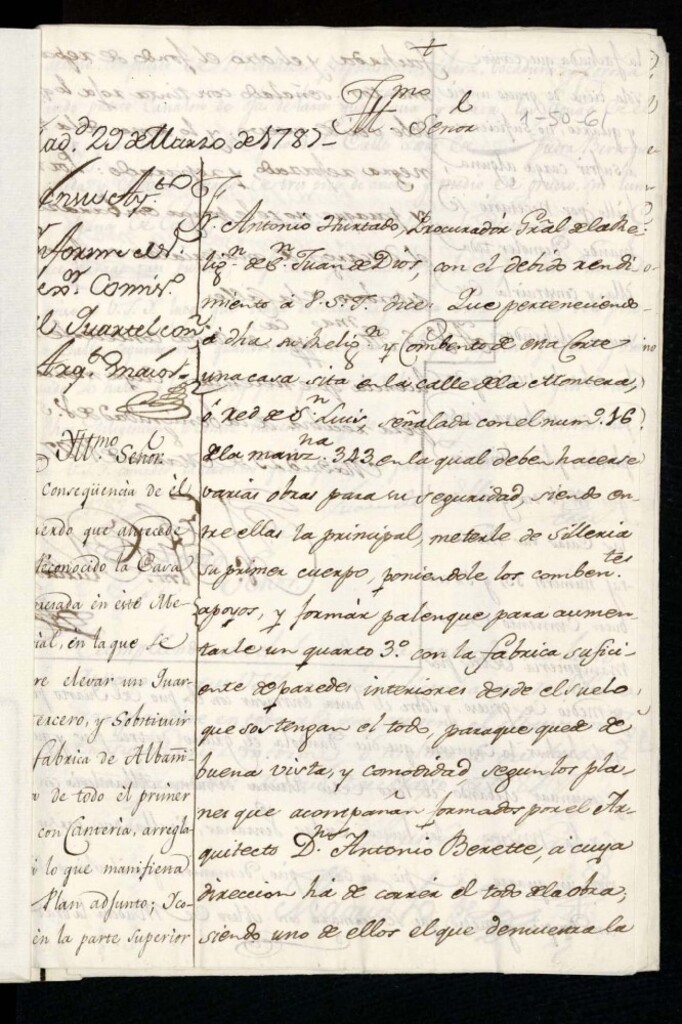 +
Yll.mo Señor
1-50-61
ad.d 29 de Marzo de 1787-
nforme el S.r
Comis.o
l Quartel con
Arq.to maior-
Yll.mo Señor
Consequencia de él
uerdo que antecede
Reconocido la Casa
presada en este Me-
ial, en la que se
re elevar un Quar-
tercero, y Sobstituir
fabrica de Albañi-
a de todo él primer
con Canteria, arregla-
lo que manifiena
Plan adjunto; Yco-
en la parte superior
Fr. Antonio Hurtado, Procurador Gñal de la Re-
lig.n de S.n Juan de Dios, con el debido rendi-
miento à V.S.Y. dice: Que perteneciendo
à dha su Relig.n y Combento de esta Corte
una casa sita en la calle de la Montera,
ó red de S.n Luis, señalada con el num.o 16
de la manz.na 343, en la qual deben hacerse
varias obras para su seguridad, siendo en-
tre ellas la principal, meterle de silleria
su primer cuerpo, poniendole los comben.tes
apoyos, y formár palenque para aumen-
tarle un quarto 3.o con la fabrica sufici-
ente de paredes interiores desde el suelo
que sostengan el todo, para que quede de
buena vista, y comodidad segun los pla-
nes que acompañan formados por el Ar-
quitecto D.n Antonio Berete, à cuya
direccion ha de corrér el todo de la obra;
siendo uno de ellos el que demuestra la